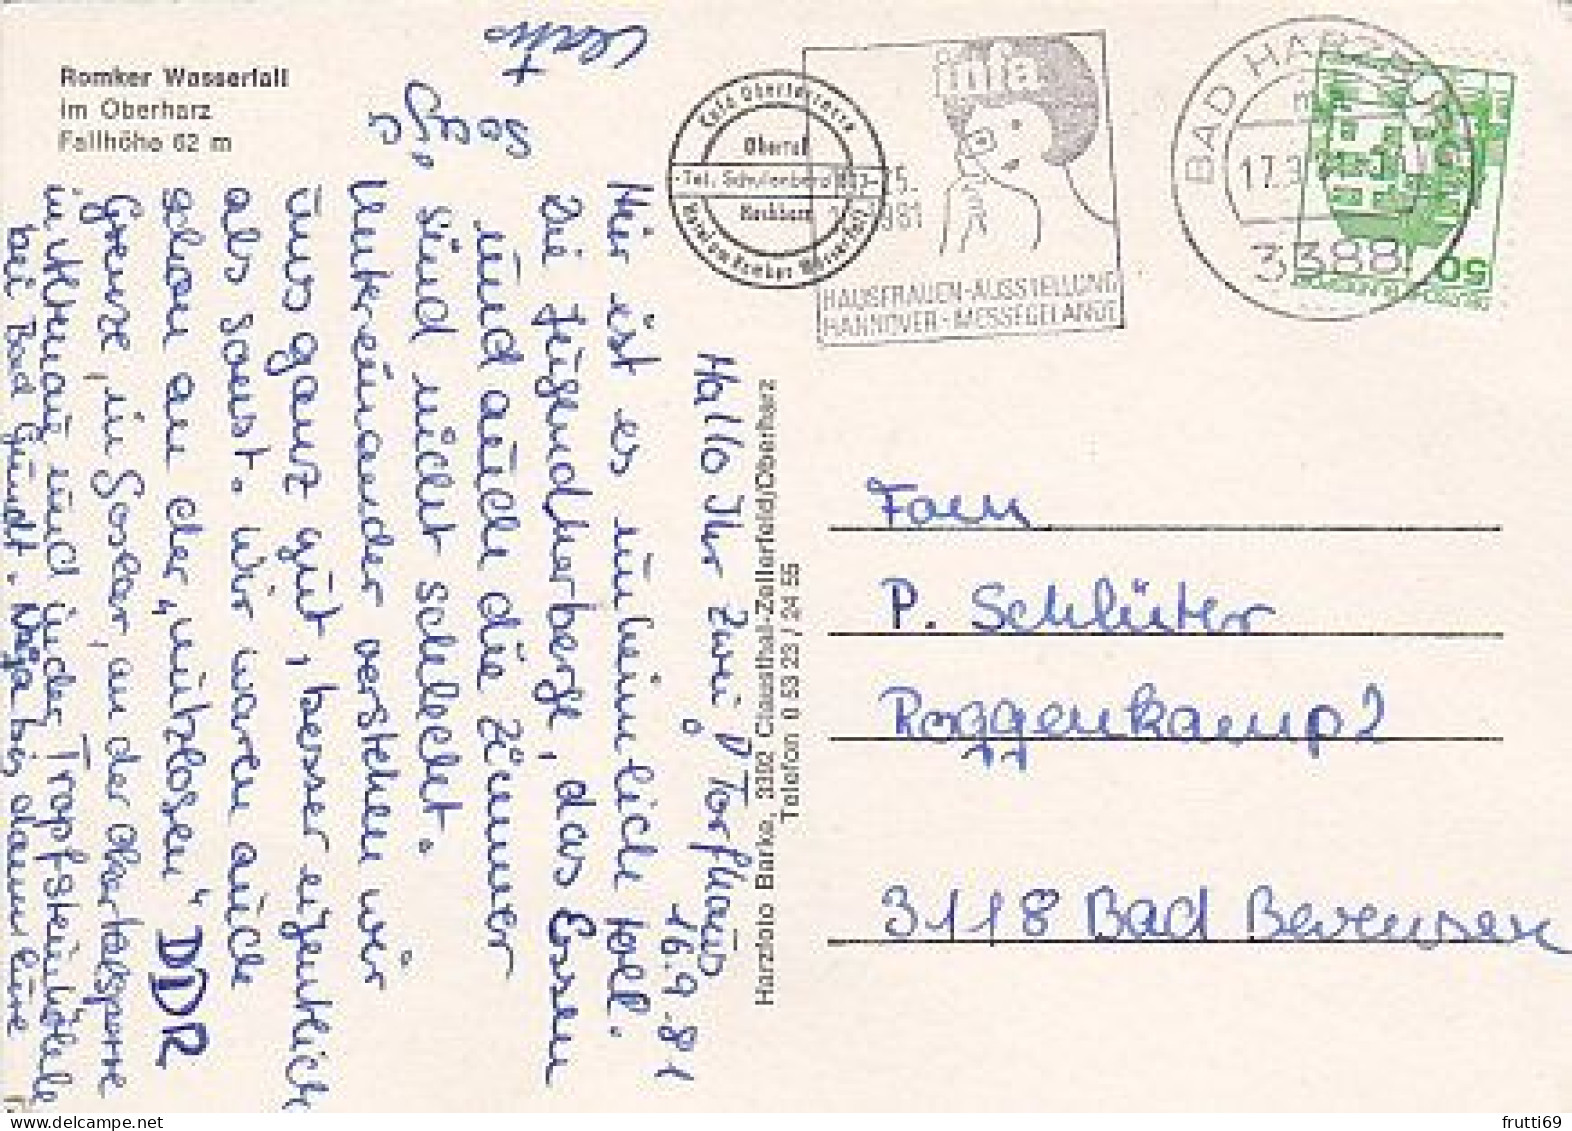 Romker Wasserfall
im Oberharz
Fallhöhe 62 m
Café Oberterrasse
Tel. Schulenberg
Hotel am Romker Wasserfall
infa
HAUSFRAUEN-AUSSTELLUNG
HANNOVER-MESSEGELÄNDE
BAD HARZBURG
17.9.81
3388
50
DEUTSCHE BUNDESPOST
Hallo Ihr Zwei! Torfhaus
16.9.81
Hier ist es unheimlich toll.
Die Jugendherberge, das Essen
und auch die Zimmer
sind nicht schlecht.
Untereinander verstehen wir
uns ganz gut, besser eigentlich
als sonst. Wir waren auch
schon an der „nutzlosen" DDR
Grenze, in Goslar, an der Okertalsperre
in Altenau und in der Tropfsteinhöhle
bei Bad Grund. Naja bis dann Eure
Harzfoto Barke, 3392 Clausthal-Zellerfeld/Oberharz
Telefon 0 53 23 / 24 55
Fam
P. Schlüter
Roggenkamp 2
3118 Bad Bevensen
frutti69